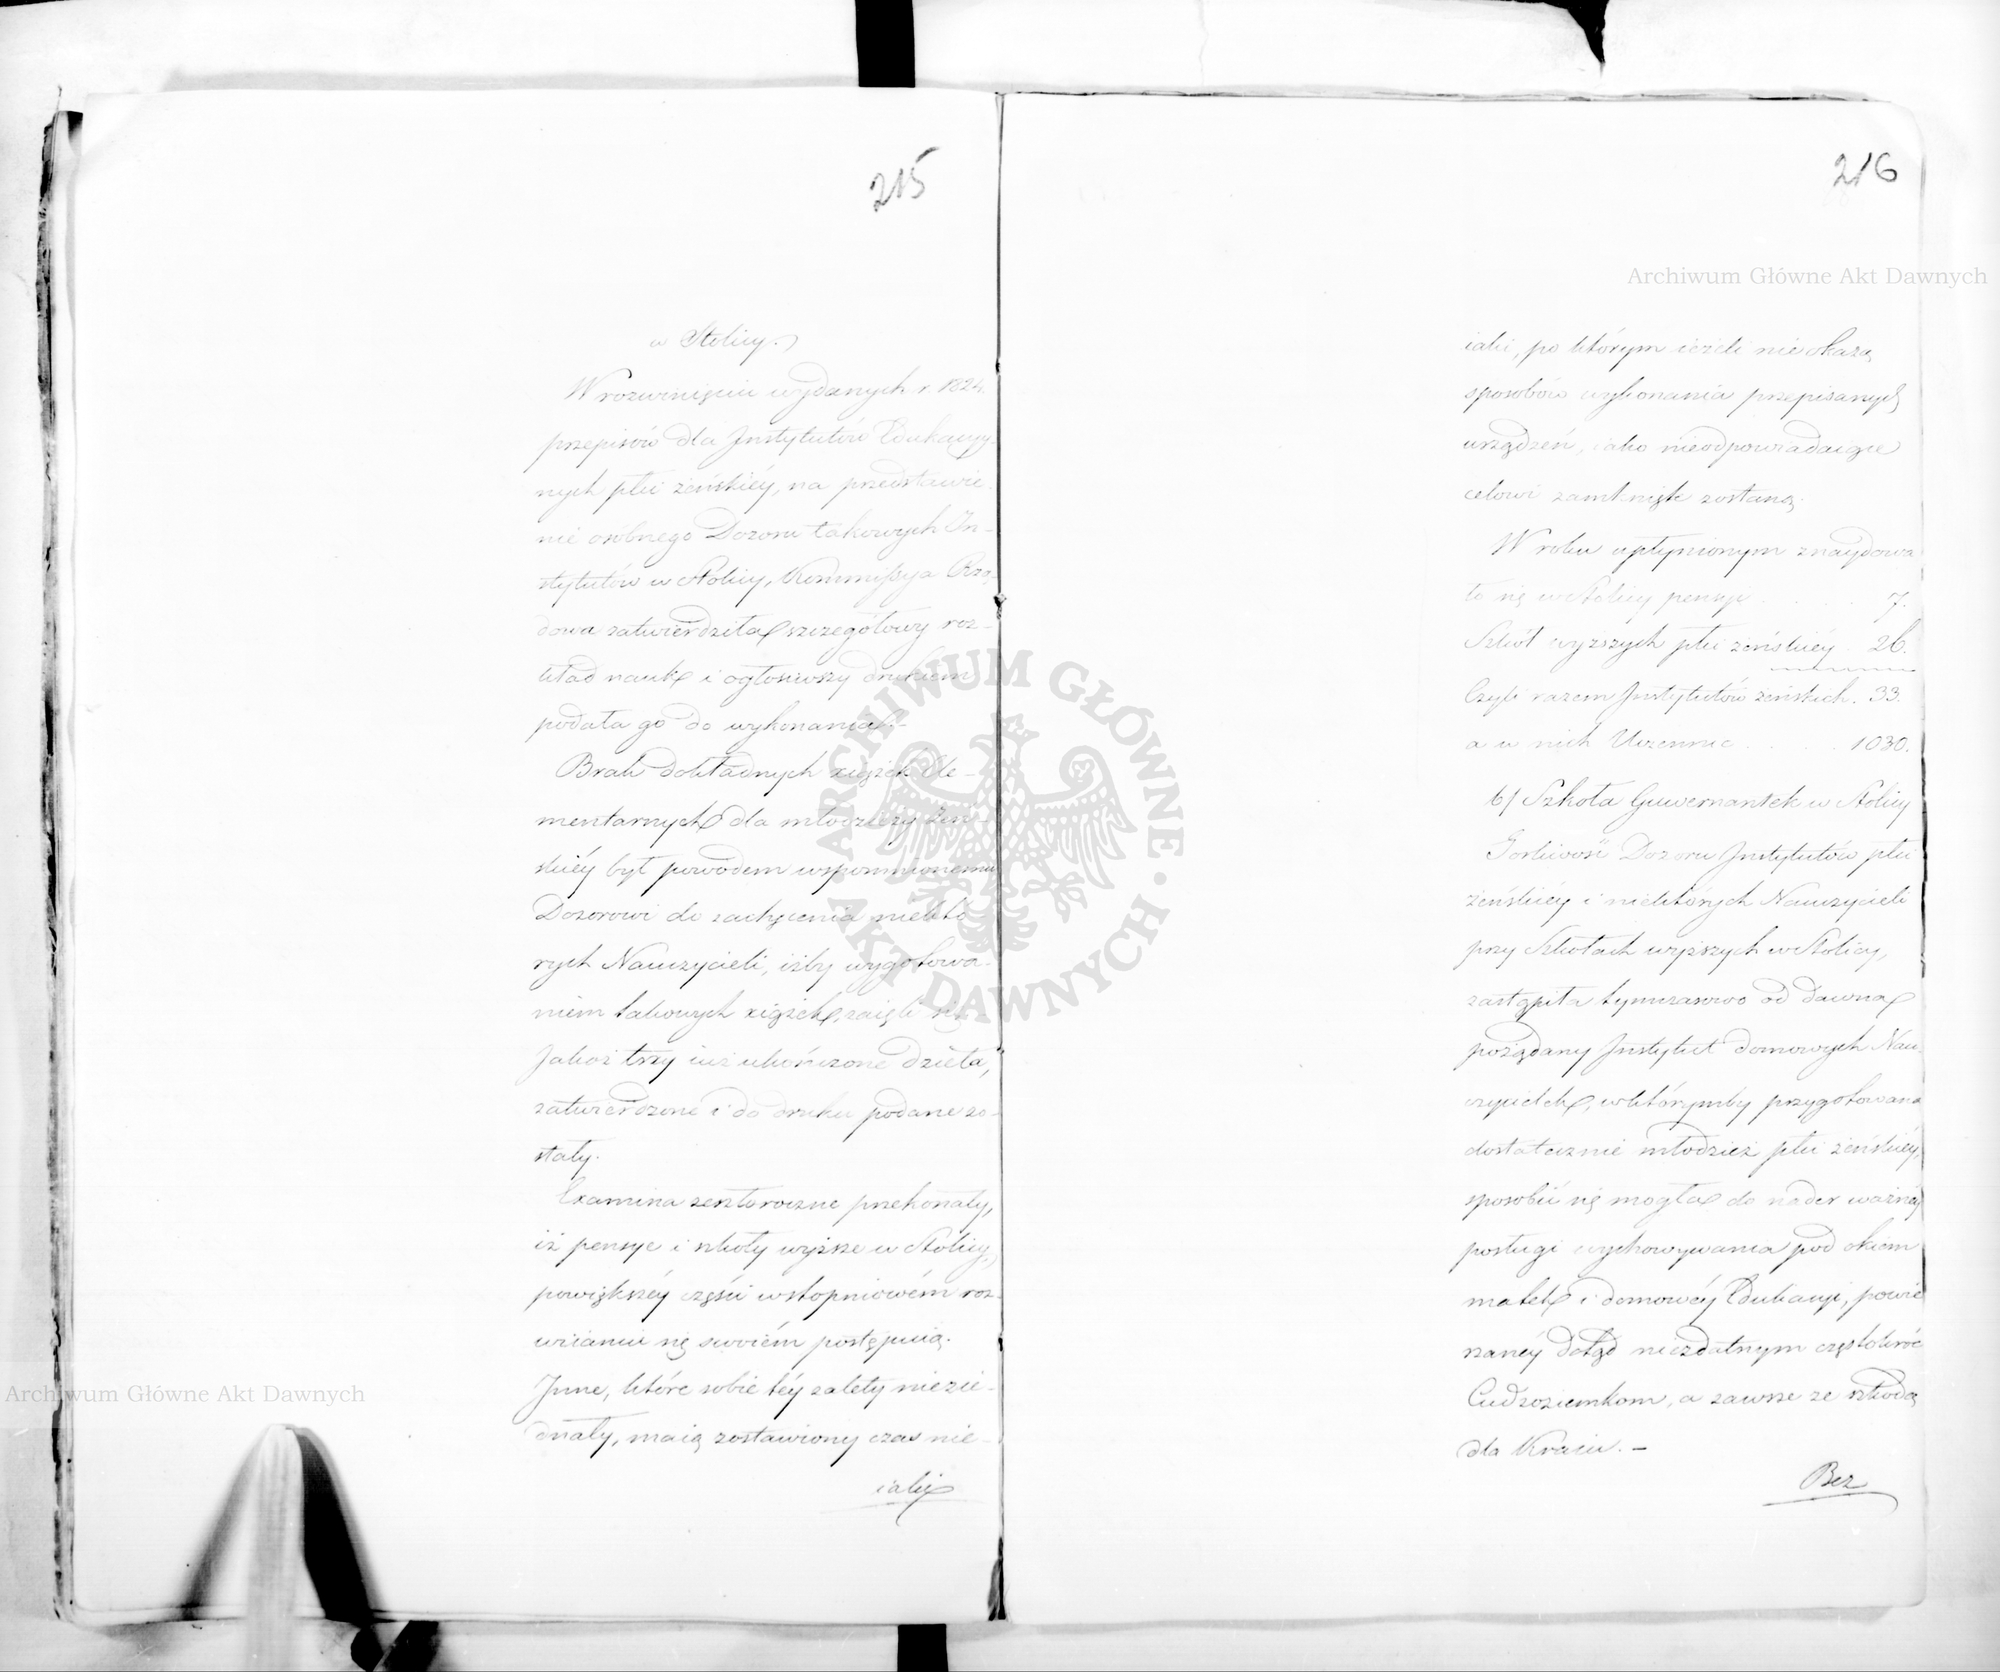 215
w Stolicy.
W rozwinięciu wydanych r. 1824.
przepisów dla Instytutów Edukacyy-
nych płci żeńskiéy, na przedstawie-
nie osóbnego Dozoru takowych In-
stytutów w Stolicy, Kommissya Rzą-
dowa zatwierdziła szczegółowy roz-
kład nauk i ogłosiwszy drukiem
podała go do wykonania.
Brak dokładnych xiążek Ele-
mentarnych dla młodzieży żeń-
skiéy był powodem wspomnionemu
Dozorowi do zachęcenia niektó-
rych Nauczycieli, iżby wygotowa-
niem takowych xiążek zaięli się.
Jakoż trzy iuż ukończone dzieła,
zatwierdzone i do druku podane zo-
stały.
Examina zeszłoroczne przekonały,
iż pensye i szkoły wyższe w Stolicy,
powiększéy części w stopniowém roz-
wiianiu się swoiém postępuią.
Inne, które sobie téy zalety niezie-
dnały, maią zostawiony czas nie-
iaki
216
iaki, po którym ieżeli nie okażą
sposobów wykonania przepisanych
urządzeń, iako nieodpowiadaiące
celowi zamknięte zostaną.
W roku upłynionym znaydowa-
ło się w Stolicy pensyi . . . . 7.
Szkół wyższych płci żeńskiéy 26.
Czyli razem Instytutów żeńskich. 33.
a w nich Uczennic . . . . 1030.
b/ Szkoła Guwernantek w Stolicy
Gorliwość Dozoru Instytutów płci
żeńskiéy i niektórych Nauczycieli
przy Szkołach wyższych w Stolicy,
zastąpiła tymczasowo od dawna
pożądany Instytut domowych Nau-
czycielek, w którymby przygotowana
dostatecznie młodzież płci żeńskiéy,
sposobić się mogła do nader ważnéy
posługi wychowywania pod okiem
matek i domowéy Edukacyi, powie-
rzanéy dotąd niezdatnym częstokroć
Cudzoziemkom, a zawsze ze szkodą
dla Kraiu. –
Bez
Archiwum Główne Akt Dawnych
Archiwum Główne Akt Dawnych
ARCHIWUM GŁÓWNE · AKT DAWNYCH ·